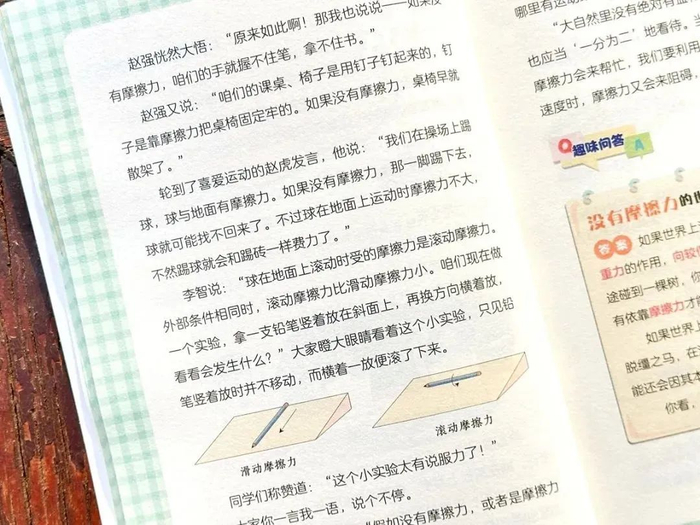 赵强恍然大悟：“原来如此啊！那我也说说——如果没
有摩擦力，咱们的手就握不住笔，拿不住书。”
赵强又说：“咱们的课桌、椅子是用钉子钉起来的，钉
子是靠摩擦力把桌椅固定牢的。如果没有摩擦力，桌椅早就
散架了。”
轮到了喜爱运动的赵虎发言，他说：“我们在操场上踢
球，球与地面有摩擦力。如果没有摩擦力，那一脚踢下去，
球就可能找不回来了。不过球在地面上运动时摩擦力不大，
不然踢球就会和踢砖一样费力了。”
李智说：“球在地面上滚动时受的摩擦力是滚动摩擦力。
外部条件相同时，滚动摩擦力比滑动摩擦力小。咱们现在做
一个实验，拿一支铅笔竖着放在斜面上，再换方向横着放，
看看会发生什么？”大家瞪大眼睛看着这个小实验，只见铅
笔竖着放时并不移动，而横着一放便滚了下来。
滑动摩擦力
滚动摩擦力
同学们称赞道：“这个小实验太有说服力了！”
大家你一言我一语，说个不停。
“假如没有摩擦力，或者是摩擦力
哪里有运动
“大自然里没有绝对有益
也应当‘一分为二’地看待。
摩擦力会来帮忙，我们要利用
速度时，摩擦力又会来阻碍，
Q趣味问答A
没有摩擦力的
答案 如果世界上
重力的作用，向较
途碰到一棵树，
有依靠摩擦力才
如果世界
脱缰之马，在
能还会因其本
你看，